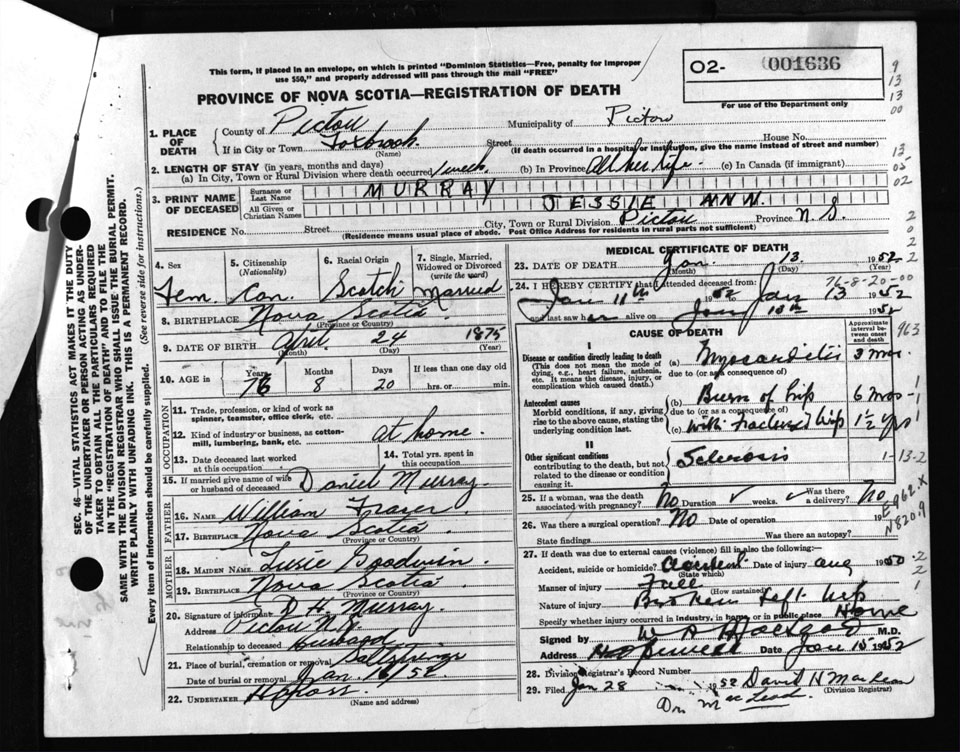 This form, if placed in an envelope, on which is printed "Dominion Statistics—Free, penalty for improper
use $50," and properly addressed will pass through the mail "FREE"
PROVINCE OF NOVA SCOTIA—REGISTRATION OF DEATH
O2- 001636
For use of the Department only
9
13
13
00
13
05
02
2
0
2
2
1. PLACE OF DEATH
County of Pictou Municipality of Pictou
If in City or Town Foxbrook Street House No.
(Name) (If death occurred in a hospital or institution, give the name instead of street and number)
2. LENGTH OF STAY (in years, months and days)
(a) In City, Town or Rural Division where death occurred 1 week (b) In Province All her life (c) In Canada (if immigrant)
3. PRINT NAME OF DECEASED
Surname or Last Name MURRAY
All Given or Christian Names JESSIE ANN
RESIDENCE No. Street City, Town or Rural Division Pictou Province N.S.
(Residence means usual place of abode. Post Office Address for residents in rural parts not sufficient)
4. Sex Fem.
5. Citizenship (Nationality) Can.
6. Racial Origin Scotch
7. Single, Married, Widowed or Divorced (write the word) Married
8. BIRTHPLACE Nova Scotia
(Province or Country)
9. DATE OF BIRTH April 24 1875
(Month) (Day) (Year)
10. AGE in Years Months Days If less than one day old
76 8 20 hrs. or min.
OCCUPATION
11. Trade, profession, or kind of work as
spinner, teamster, office clerk, etc.
12. Kind of industry or business, as cotton-
mill, lumbering, bank, etc. at home
13. Date deceased last worked
at this occupation
14. Total yrs. spent in
this occupation
15. If married give name of wife
or husband of deceased Daniel Murray
FATHER
16. NAME William Fraser
17. BIRTHPLACE Nova Scotia
(Province or Country)
MOTHER
18. MAIDEN NAME Goodwin
19. BIRTHPLACE Nova Scotia
(Province or Country)
20. Signature of informant D. H. Murray
Address Pictou
Relationship to deceased Husband
21. Place of burial, cremation or removal
Date of burial or removal Jan. 16/52
22. UNDERTAKER
(Name and address)
MEDICAL CERTIFICATE OF DEATH
23. DATE OF DEATH Jan. 13. 1952
(Month) (Day) (Year)
76-8-20-00
24. I HEREBY CERTIFY that I attended deceased from:
Jan 11th 1952 to Jan 13 1952
and last saw her alive on Jan 1952
CAUSE OF DEATH
Approximate interval between onset and death
963
I
Disease or condition directly leading to death
(This does not mean the mode of dying, e.g., heart failure, asthenia, etc. It means the disease, injury, or complication which caused death.)
(a) Myocarditis 3 mos.
due to (or as a consequence of)
Antecedent causes
Morbid conditions, if any, giving rise to the above cause, stating the underlying condition last.
(b) Burn of hip 6 mos - 1
due to (or as a consequence of)
(c) with Fractured hip 1½ yrs 1
II
Other significant conditions
contributing to the death, but not related to the disease or condition causing it.
Sclerosis
1-13-2
25. If a woman, was the death
associated with pregnancy? No Duration ✓ weeks. ✓ Was there a delivery? No
26. Was there a surgical operation? No Date of operation 19
State findings Was there an autopsy?
E962.X
N820.9
27. If death was due to external causes (violence) fill in also the following:
Accident, suicide or homicide? Accident Date of injury Aug 1950
(State which)
Manner of injury Fall
(How sustained)
Nature of injury Broken Left hip
Specify whether injury occurred in industry, in home or in public place Home
Signed by M.D.
Address Hopewell Date Jan 15 1952
28. Division Registrar's Record Number
29. Filed Jan 28 1952 David H MacLean
(Division Registrar)
Dr. MacLeod
SEC. 46—VITAL STATISTICS ACT MAKES IT THE DUTY
OF THE UNDERTAKER OR PERSON ACTING AS UNDER-
TAKER TO OBTAIN ALL THE PARTICULARS REQUIRED
IN THE "REGISTRATION OF DEATH" AND TO FILE THE
SAME WITH THE DIVISION REGISTRAR WHO SHALL ISSUE THE BURIAL PERMIT.
WRITE PLAINLY WITH UNFADING INK. THIS IS A PERMANENT RECORD.
Every item of information should be carefully supplied. (See reverse side for instructions.)